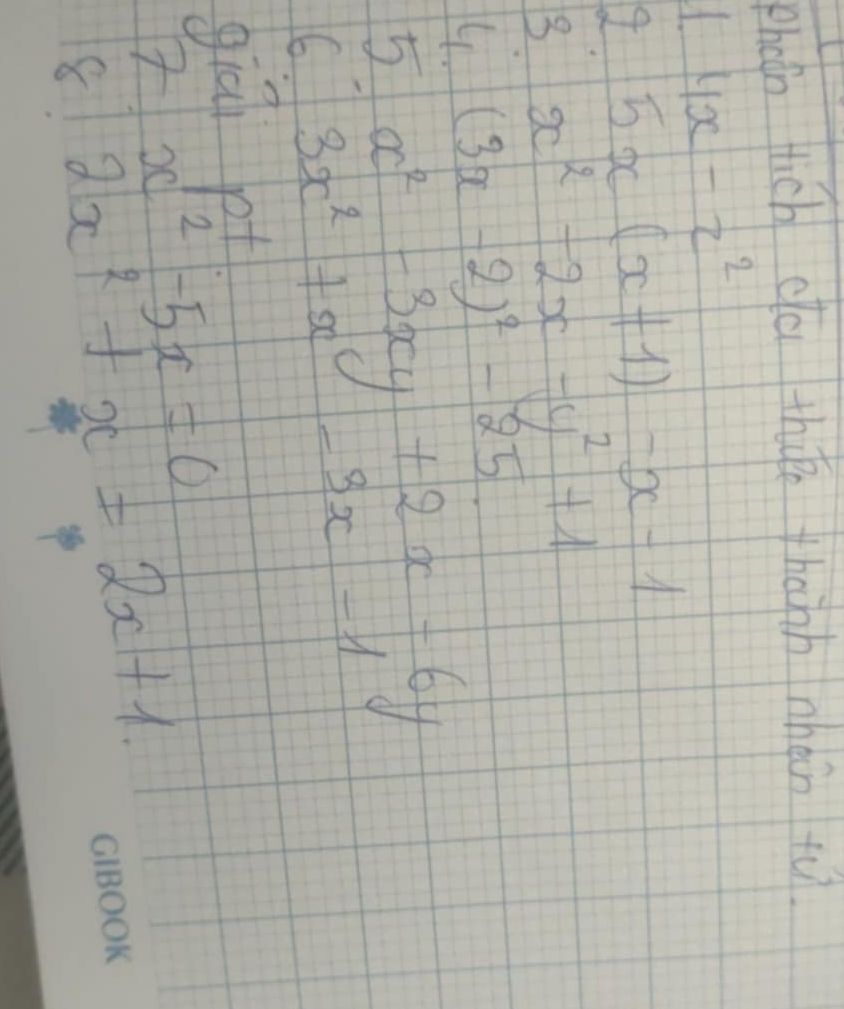 Phân tích đa thức thành nhân tử.
1. 4x - x²
2. 5x (x + 1) - x - 1
3. x² - 2x - y² + 1
4. (3x - 2)² - 25.
5. x² - 3xy + 2x - 6y
6. 3x² + xy - 3x - 1y
giải pt.
7. x² - 5x = 0
8. 2x² + x = 2x + 1.
GIBOOK